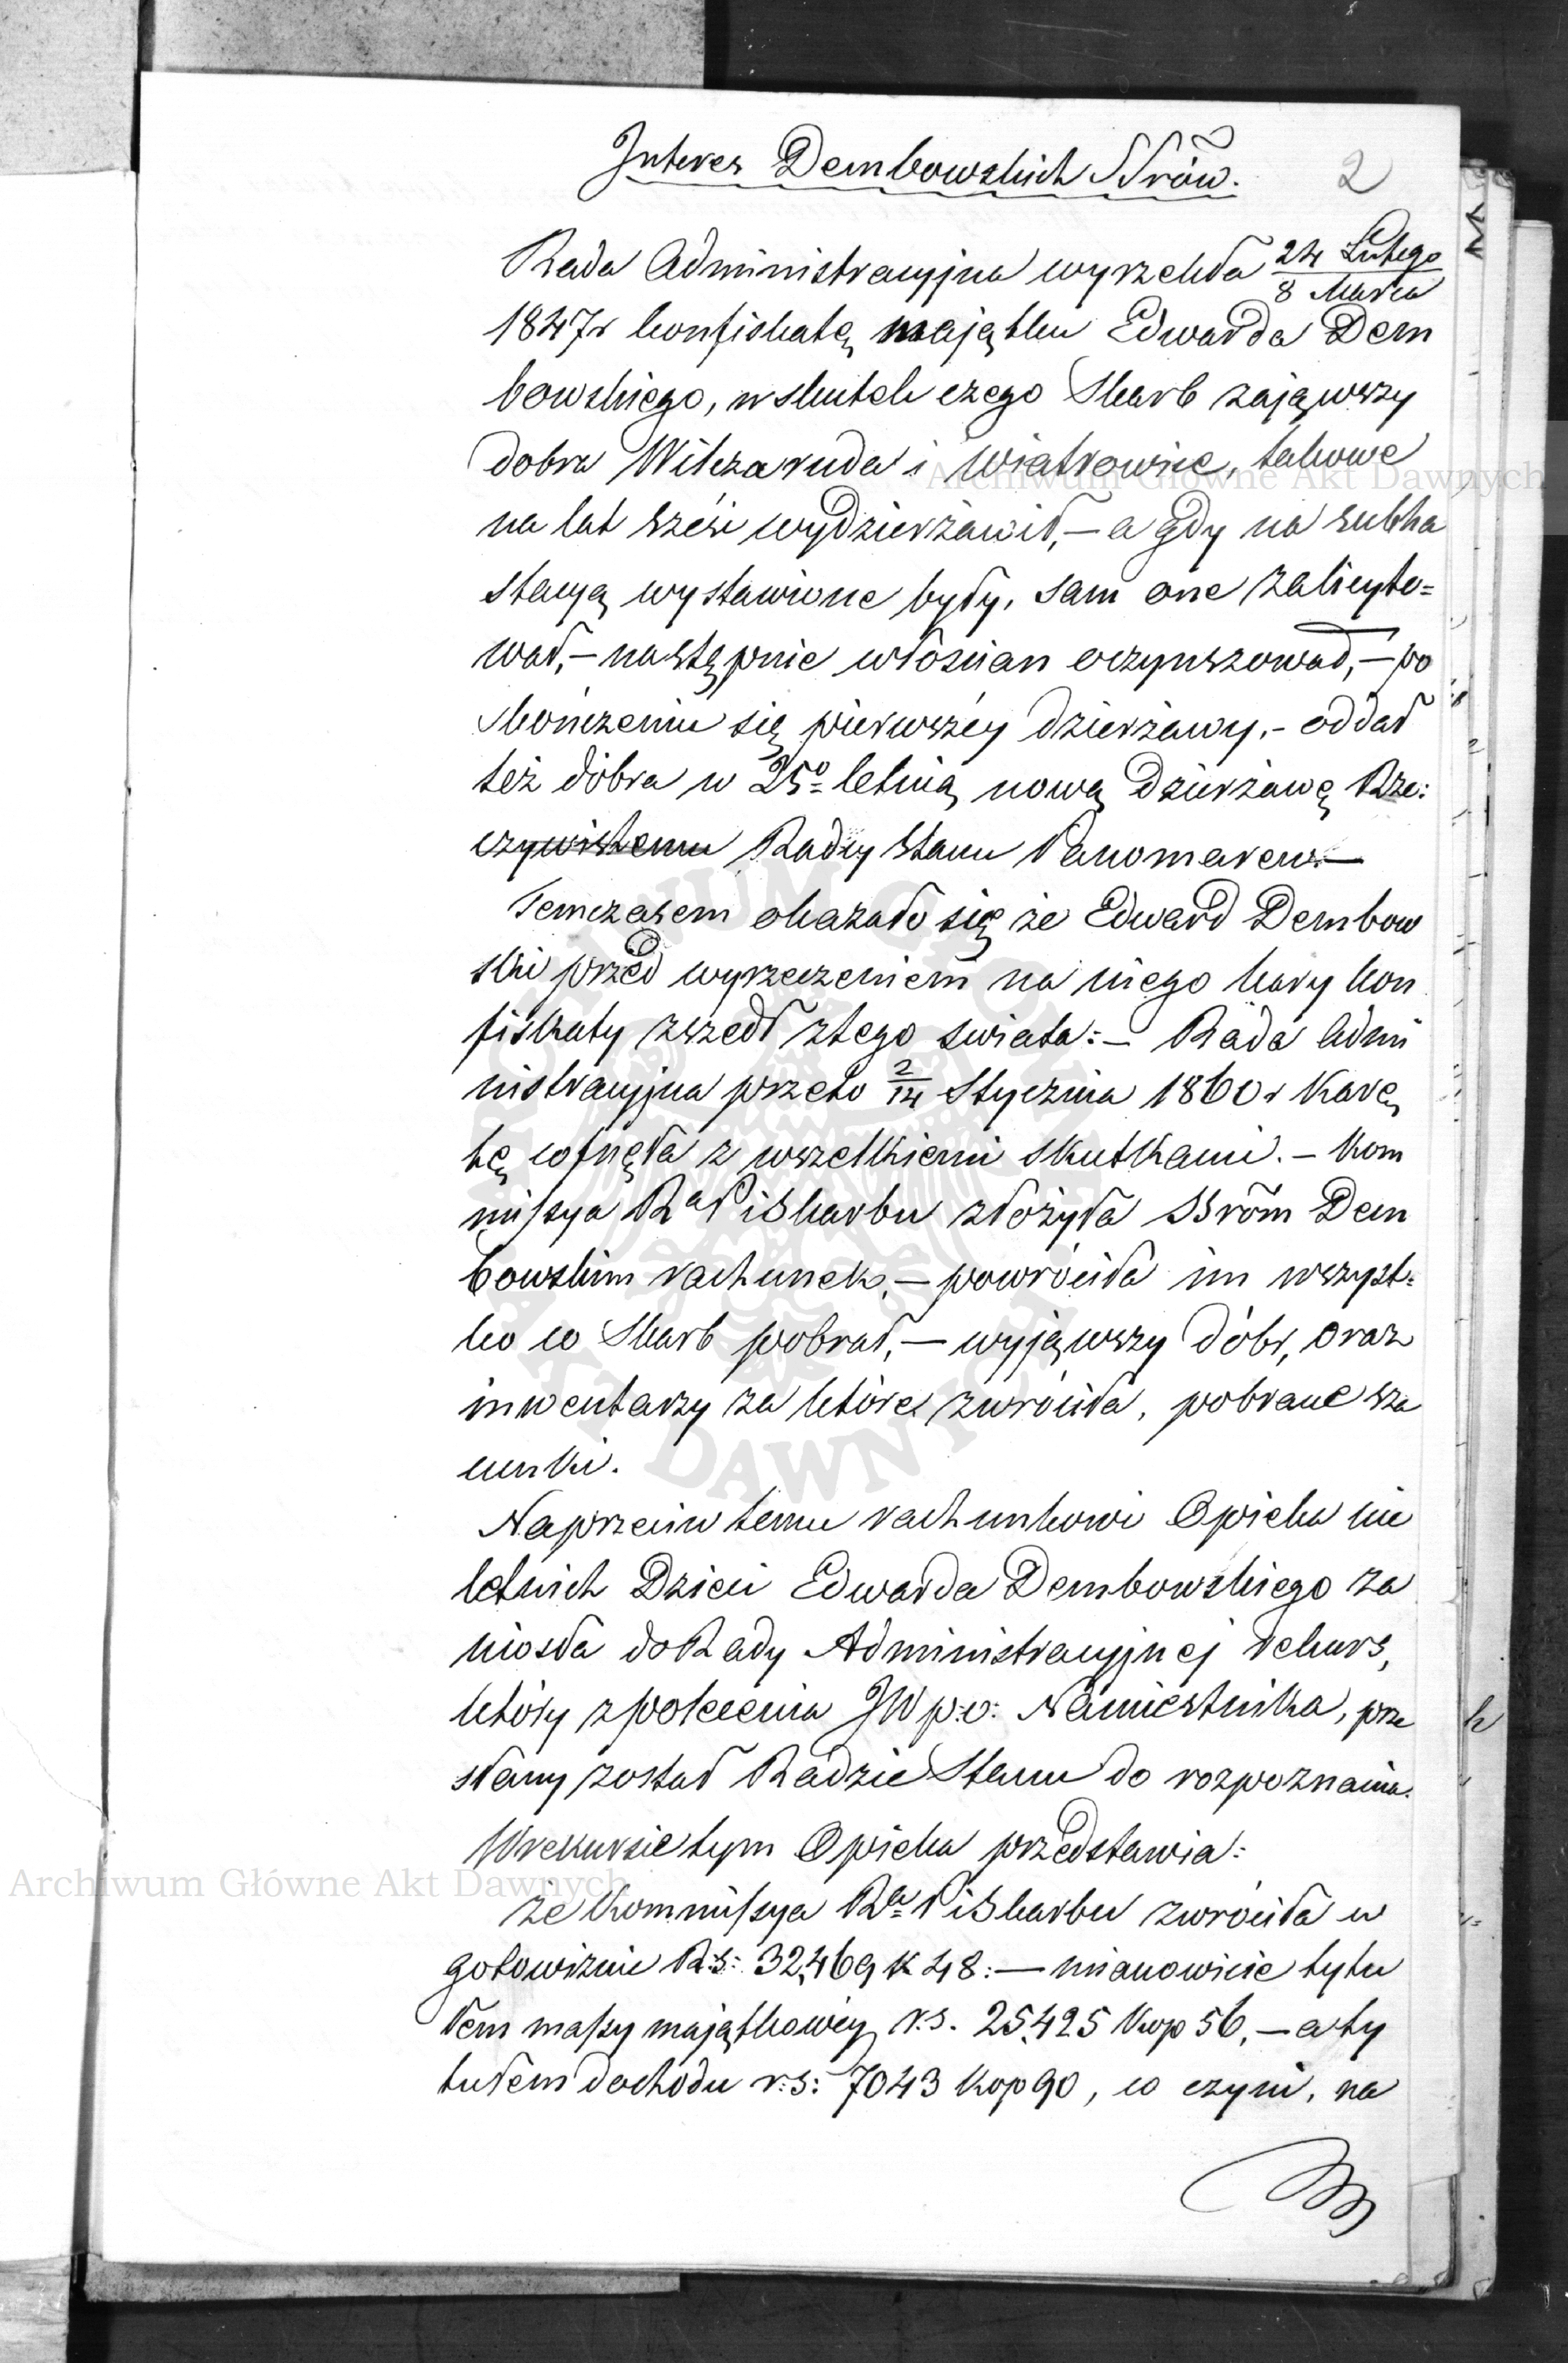 Interes Dembowskich SSrów.
2
Rada Administracyjna wyrzekła 24 Lutego / 8 Marca
1847r konfiskatę majątku Edwarda Dem
bowskiego, wskutek czego Skarb zająwszy
dobra Wilczaruda i Wiatrowiec, takowe
na lat sześć wydzierżawił, — a gdy na subha
stacyą wystawione były, sam one zalicyto=
wał, — następnie włościan oczynszował, — po
skończeniu się pierwszéy dzierżawy, - oddał
też dobra w 25º letnią nową dzierżawę Rze:
czywistemu Radcy Stanu Panomarew. —
Temczasem okazało się że Edward Dembow
ski przed wyrzeczeniem na niego kary kon
fiskaty zszedł ztego swiata: — Rada Admi
nistracyjna przeto 2/14 Stycznia 1860r Karę
tę cofnęła z wszelkiemi skutkami. — Kom
missya Ra P i Skarbu złożyła SSrom Dem
bowskim rachunek, — powróciła im wszyst=
ko co Skarb pobrał, — wyjąwszy dóbr, oraz
inwentarzy za które zwróciła, pobrane sza
cunki.
Naprzeciw temu rachunkowi Opieka nie
letnich Dzieci Edwarda Dembowskiego za
niosła do Rady Administracyjnej rekurs,
który z polecenia JW p:o: Namiestnika, prze
słany został Radzie Stanu do rozpoznania.
W rekursie tym Opieka przedstawia:
że Kommissya Ra P i Skarbu zwróciła w
gotowiznie R:s: 32,469 k 48: — mianowicie tytu
łem massy majątkowéy r.s. 25,425 kop 56, — a ty
tułem dochodu r:s: 7043 kop 90, co czyni, na
Archiwum Główne Akt Dawnych
Archiwum Główne Akt Dawnych